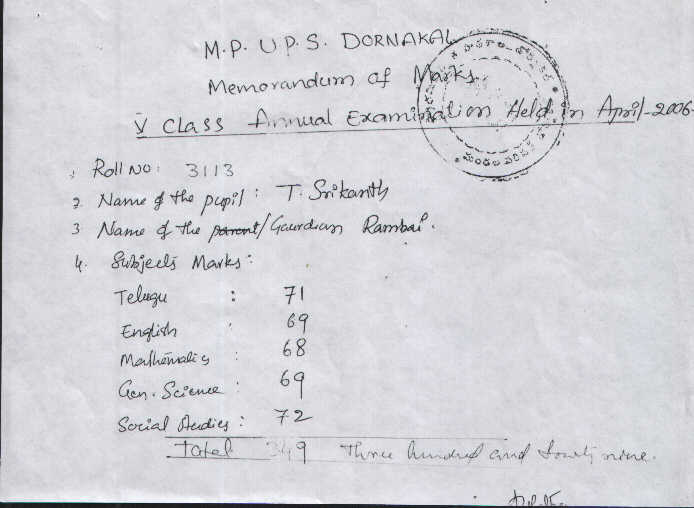 M.P. U.P.S. DORNAKAL
Memorandum of Marks
V Class Annual Examination Held in April-2006.
1 Roll NO: 3113
2. Name of the pupil: T. Srikanth
3 Name of the parent/Gaurdian Rambai.
4. Subjects Marks:
Telugu : 71
English : 69
Mathematics : 68
Gen. Science : 69
Social Studies : 72
Total 349 Three hundred and fourty nine.